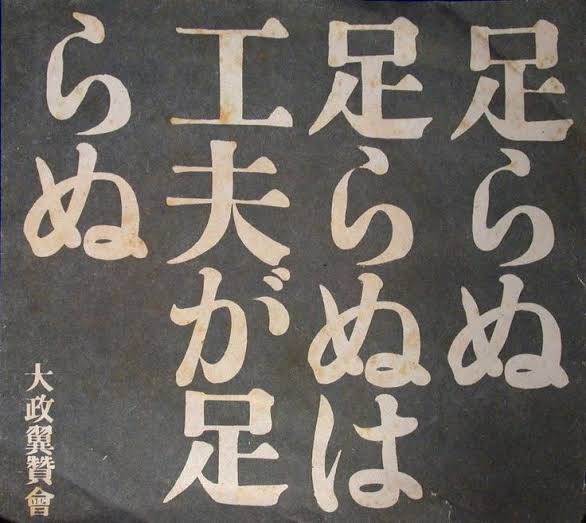 足らぬ
足らぬは
工夫が足
らぬ
大政翼賛會